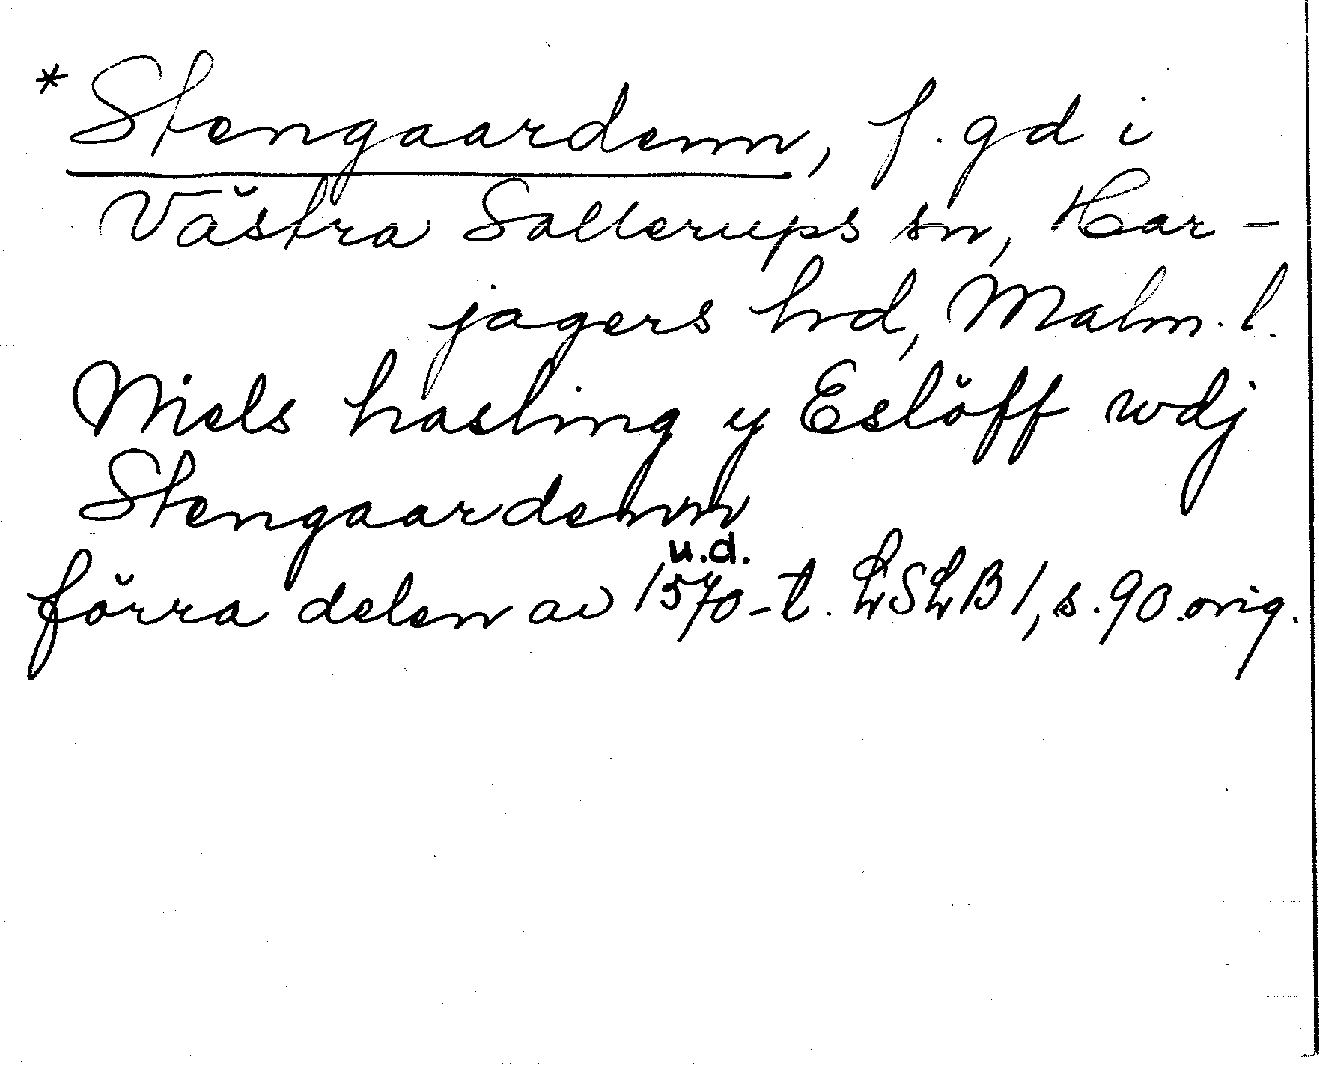 *Stengaardenn, f. gd i
Västra Sallerups sn, Har-
jagers hd, Malm. l.
Niels hasling y Eslöff wdj
Stengaardenn
u.d.
förra delen av 1570-t. LSLB 1, s. 90 orig.